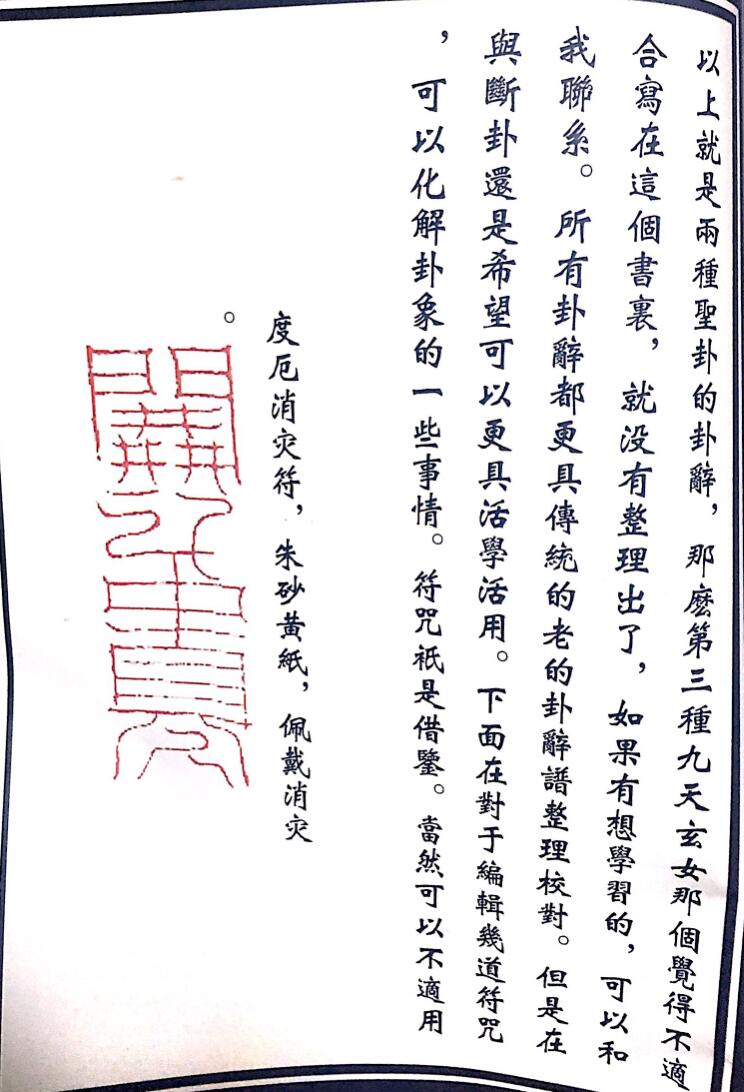 以上就是兩種聖卦的卦辭，那麼第三種九天玄女那個覺得不適
合寫在這個書裏，就没有整理出了，如果有想學習的，可以和
我聯系。所有卦辭都更具傳統的老的卦辭譜整理校對。但是在
與斷卦還是希望可以更具活學活用。下面在對于編輯幾道符咒
，可以化解卦象的一些事情。符咒祇是借鑒。當然可以不適用
度厄消灾符，朱砂黄紙，佩戴消灾
。